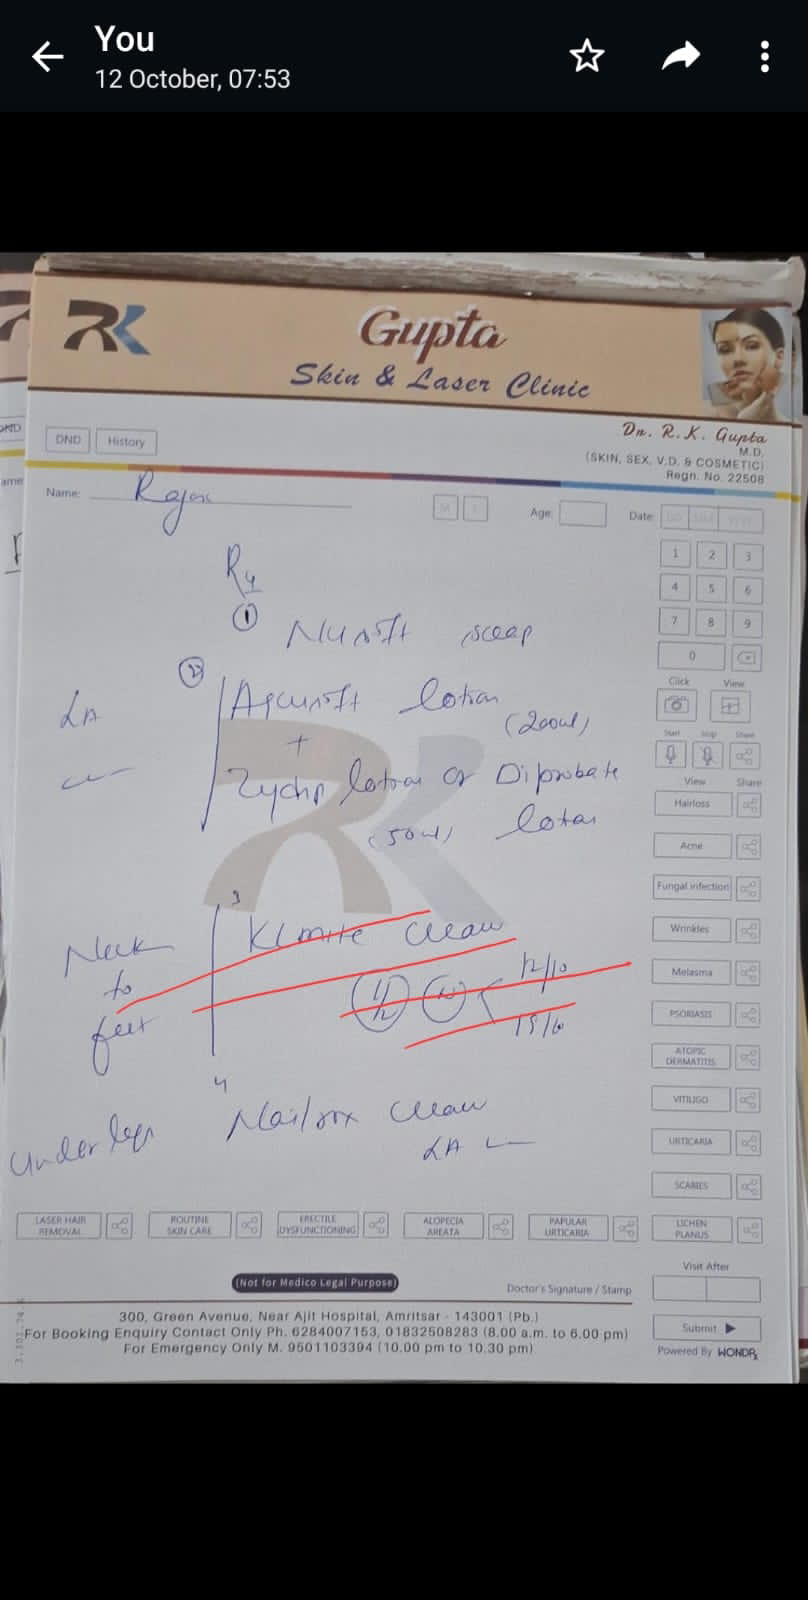 You
12 October, 07:53
RK
Gupta
Skin & Laser Clinic
Dr. R.K. Gupta
M.D.
(SKIN, SEX, V.D. & COSMETIC)
Regn. No. 22508
DND
History
Name:
M
Age:
Date:
1 2 3
4 5 6
7 8 9
0
Click View
Start Stop Share
View Share
Hairloss
Acne
Fungal infection
Wrinkles
Melasma
PSORIASIS
ATOPIC
DERMATITIS
VITILIGO
URTICARIA
SCABIES
LICHEN
PLANUS
Visit After
Submit
Powered By WONDRx
Rx
1
soap
2
LA
lotion
(200ml)
+
lotion or Diprobate
(50ml) lotion
3
Neck
to
feet
Klmite cream
12/10
19/10
4
Under legs
cream
LA
LASER HAIR
REMOVAL
ROUTINE
SKIN CARE
ERECTILE
DYSFUNCTIONING
ALOPECIA
AREATA
PAPULAR
URTICARIA
(Not for Medico Legal Purpose)
Doctor's Signature / Stamp
300, Green Avenue, Near Ajit Hospital, Amritsar - 143001 (Pb.)
For Booking Enquiry Contact Only Ph. 6284007153, 01832508283 (8.00 a.m. to 6.00 pm)
For Emergency Only M. 9501103394 (10.00 pm to 10.30 pm)